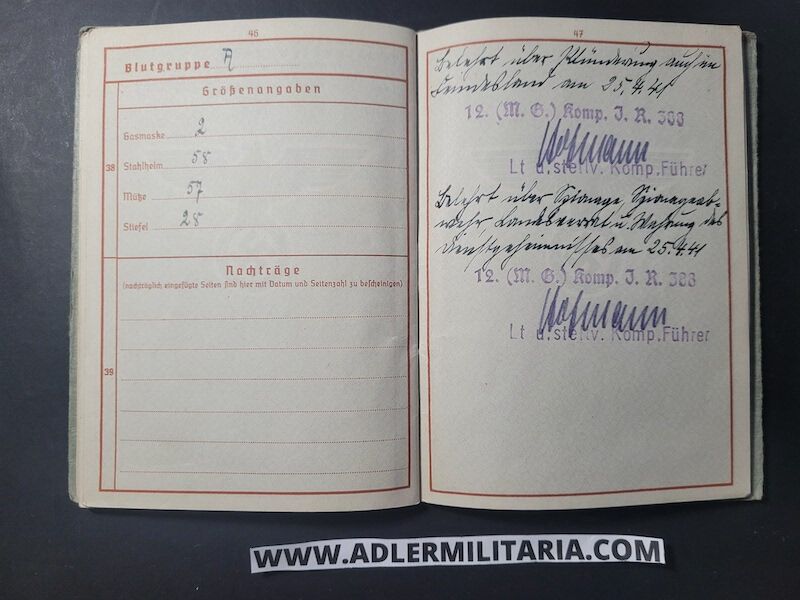 46
Blutgruppe A
Größenangaben
38
Gasmaske 2
Stahlhelm 58
Mütze 57
Stiefel 28
Nachträge
(nachträglich eingefügte Seiten sind hier mit Datum und Seitenzahl zu bescheinigen)
39
47
Belehrt über Plünderung auch in
Feindesland am 25.4.41
12. (M. G.) Komp. I. R. 388
Hofmann
Lt u. stellv. Komp.Führer
Belehrt über Spionage, Spionageab-
wehr, Landesverrat u. Wahrung des
Dienstgeheimnisses am 25.4.41
12. (M. G.) Komp. I. R. 388
Hofmann
Lt u. stellv. Komp.Führer
WWW.ADLERMILITARIA.COM